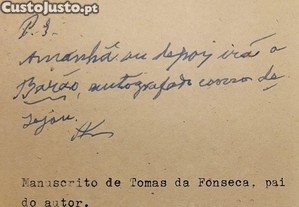 CustoJusto.pt
P.S.
Amanhã ou depois irá o
Barão, autografado como de-
sejou.
Manuscrito de Tomas da Fonseca, pai
do autor.